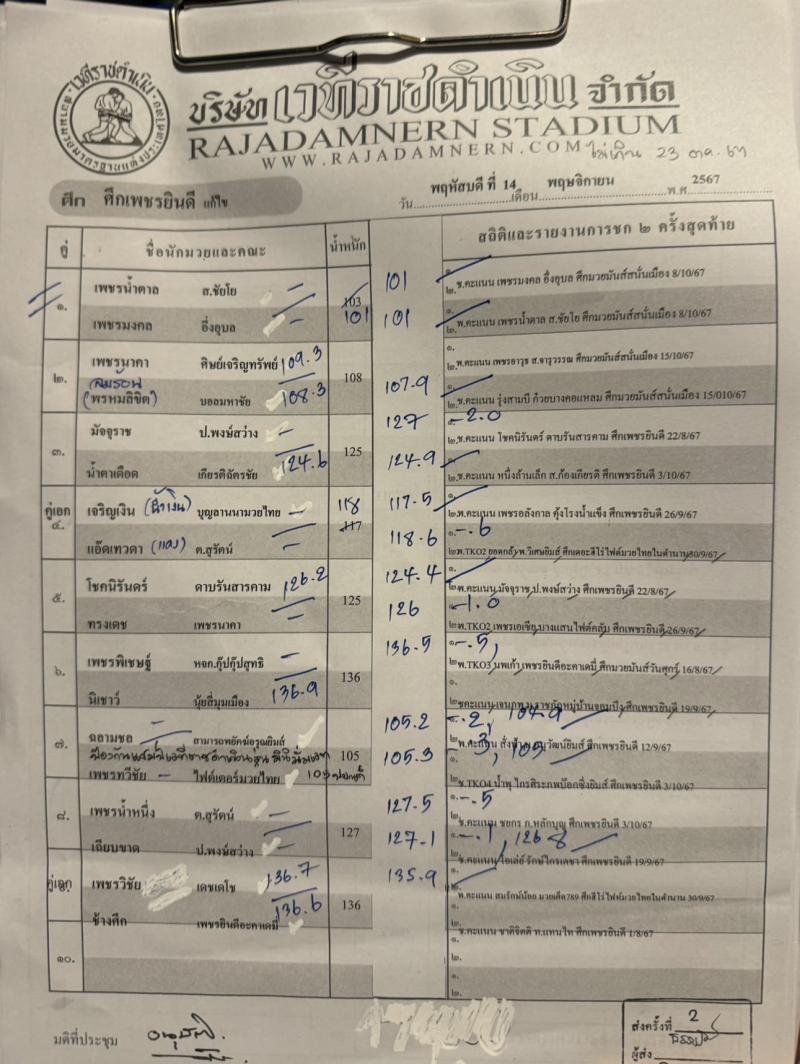 บริษัท เวทีราชดำเนิน จำกัด
RAJADAMNERN STADIUM
WWW.RAJADAMNERN.COM ไม่เกิน 23 ตค. 67
ศึก ศึกเพชรยินดี แก้ไข
วัน พฤหัสบดี ที่ 14 เดือน พฤศจิกายน พ.ศ. 2567
คู่ ชื่อนักมวยและคณะ น้ำหนัก สถิติและรายงานการชก ๒ ครั้งสุดท้าย
๑.
เพชรน้ำตาล ส.ชัยโย – 103 101 ๑.
๒.ช.คะแนน เพชรมงคล อึ่งอุบล ศึกมวยมันส์สนั่นเมือง 8/10/67
เพชรมงคล อึ่งอุบล – 101 101 ๑.
๒.พ.คะแนน เพชรน้ำตาล ส.ชัยโย ศึกมวยมันส์สนั่นเมือง 8/10/67
๒.
เพชรนาคา ศิษย์เจริญทรัพย์ 109.3 108 ๑.
๒.พ.คะแนน เพชรอาวุธ ส.จารุวรรณ ศึกมวยมันส์สนั่นเมือง 15/10/67
(พรหมลิขิต) บอลมหาชัย 108.3 107.9 ๑.
๒.ช.คะแนน รุ่งสามบี ก๋วยบางคอแหลม ศึกมวยมันส์สนั่นเมือง 15/010/67
๓.
มัจฉราช ป.พงษ์สว่าง – 125 127 ๑. -2.0
๒.ช.คะแนน โชคนิรันดร์ ดาบรันสารคาม ศึกเพชรยินดี 22/8/67
น้ำตาเดือด เกียรติฉัตรชัย 124.6 124.9 ๑.
๒.ช.คะแนน หนึ่งล้านเล็ก ส.ก้องเกียรติ ศึกเพชรยินดี 3/10/67
คู่เอก
๔.
เจริญเงิน (น้ำเงิน) บุญลานนามวยไทย 118 117.5 ๑.
๒.พ.คะแนน เพชรอลังกาล คุ้งโรงน้ำแข็ง ศึกเพชรยินดี 26/9/67
แอ๊ดเทวดา (แดง) ต.สุรัตน์ – 117 118.6 ๑. -.6
๒.พ.TKO2 ยอดกล้า พ.วิเศษยิมส์ ศึกเดอะฮีโร่ไฟต์มวยไทยในตำนาน 30/9/67
๕.
โชคนิรันดร์ ดาบรันสารคาม 126.2 125 124.4 ๑.
๒.พ.คะแนน มัจฉราช ป.พงษ์สว่าง ศึกเพชรยินดี 22/8/67
ทรงเดช เพชรนาคา – 126 ๑. -1.0
๒.พ.TKO2 เพชรเอเชีย บางแสนไฟต์คลับ ศึกเพชรยินดี 26/9/67
๖.
เพชรพิเชษฐ์ หจก.กุ๊ปคุ้ปสุทธิ – 136 136.5 ๑. -.5
๒.พ.TKO3 นพเก้า เพชรยินดีอะคาเดมี่ ศึกมวยมันส์วันศุกร์ 16/8/67
นิเชาว์ นุ้ยสี่มุมเมือง 136.9 ๑.
ศึกเพชรยินดี 19/9/67
๗.
ฉลามชล – สามารถพยัคฆ์อรุณยิมส์ 105 105.2 ๑. -.2, 104.9
ศึกเพชรยินดี 12/9/67
เพชรทวีชัย – ไฟต์เตอร์มวยไทย 105.3 -.3, 105
๒.ช.TKO4 น้ำพุ ไกรศิระภพน๊อกซิ่งยิมส์ ศึกเพชรยินดี 3/10/67
๘.
เพชรน้ำหนึ่ง ต.สุรัตน์ – 127 127.5 ๑. -.5
๒.ช.คะแนน ชยกร ภ.หลักบุญ ศึกเพชรยินดี 3/10/67
เฉียบขาด ป.พงษ์สว่าง – 127.1 ๑. -.1 126.8
๒.ช.คะแนน โอเล่ย์ รักษ์ไกรเดชา ศึกเพชรยินดี 19/9/67
คู่เอก
เพชรวิชัย เดชเดโช 136.7 136 135.9 ๑.
พ.คะแนน สมรักษ์น้อย มวยเด็ด789 ศึกฮีโร่ไฟท์มวยไทยในตำนาน 30/9/67
ช้างศึก เพชรยินดีอะคาเดมี่ 136.6 ๑.
๒.ช.คะแนน ชาติจิตติ ท.แทนไท ศึกเพชรยินดี 1/8/67
๑๐.
๑.
๒.
๑.
๒.
มติที่ประชุม
ส่งครั้งที่ 2
ผู้ส่ง